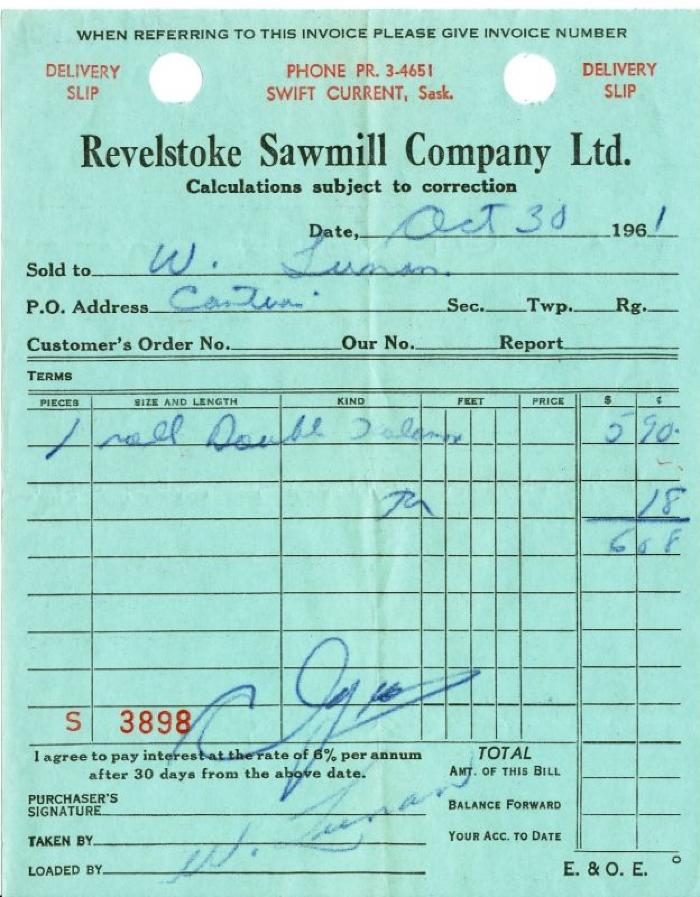 WHEN REFERRING TO THIS INVOICE PLEASE GIVE INVOICE NUMBER
DELIVERY SLIP PHONE PR. 3-4651 DELIVERY SLIP
SWIFT CURRENT, Sask.
Revelstoke Sawmill Company Ltd.
Calculations subject to correction
Date, Oct 30 1961
Sold to W.
P.O. Address Sec. Twp. Rg.
Customer's Order No. Our No. Report
TERMS
PIECES SIZE AND LENGTH KIND FEET PRICE $ ¢
1 roll Double 5 90
18
6 08
S 3898
I agree to pay interest at the rate of 6% per annum
after 30 days from the above date.
TOTAL
AMT. OF THIS BILL
PURCHASER'S
SIGNATURE
BALANCE FORWARD
TAKEN BY W.
YOUR ACC. TO DATE
LOADED BY
E. & O. E.